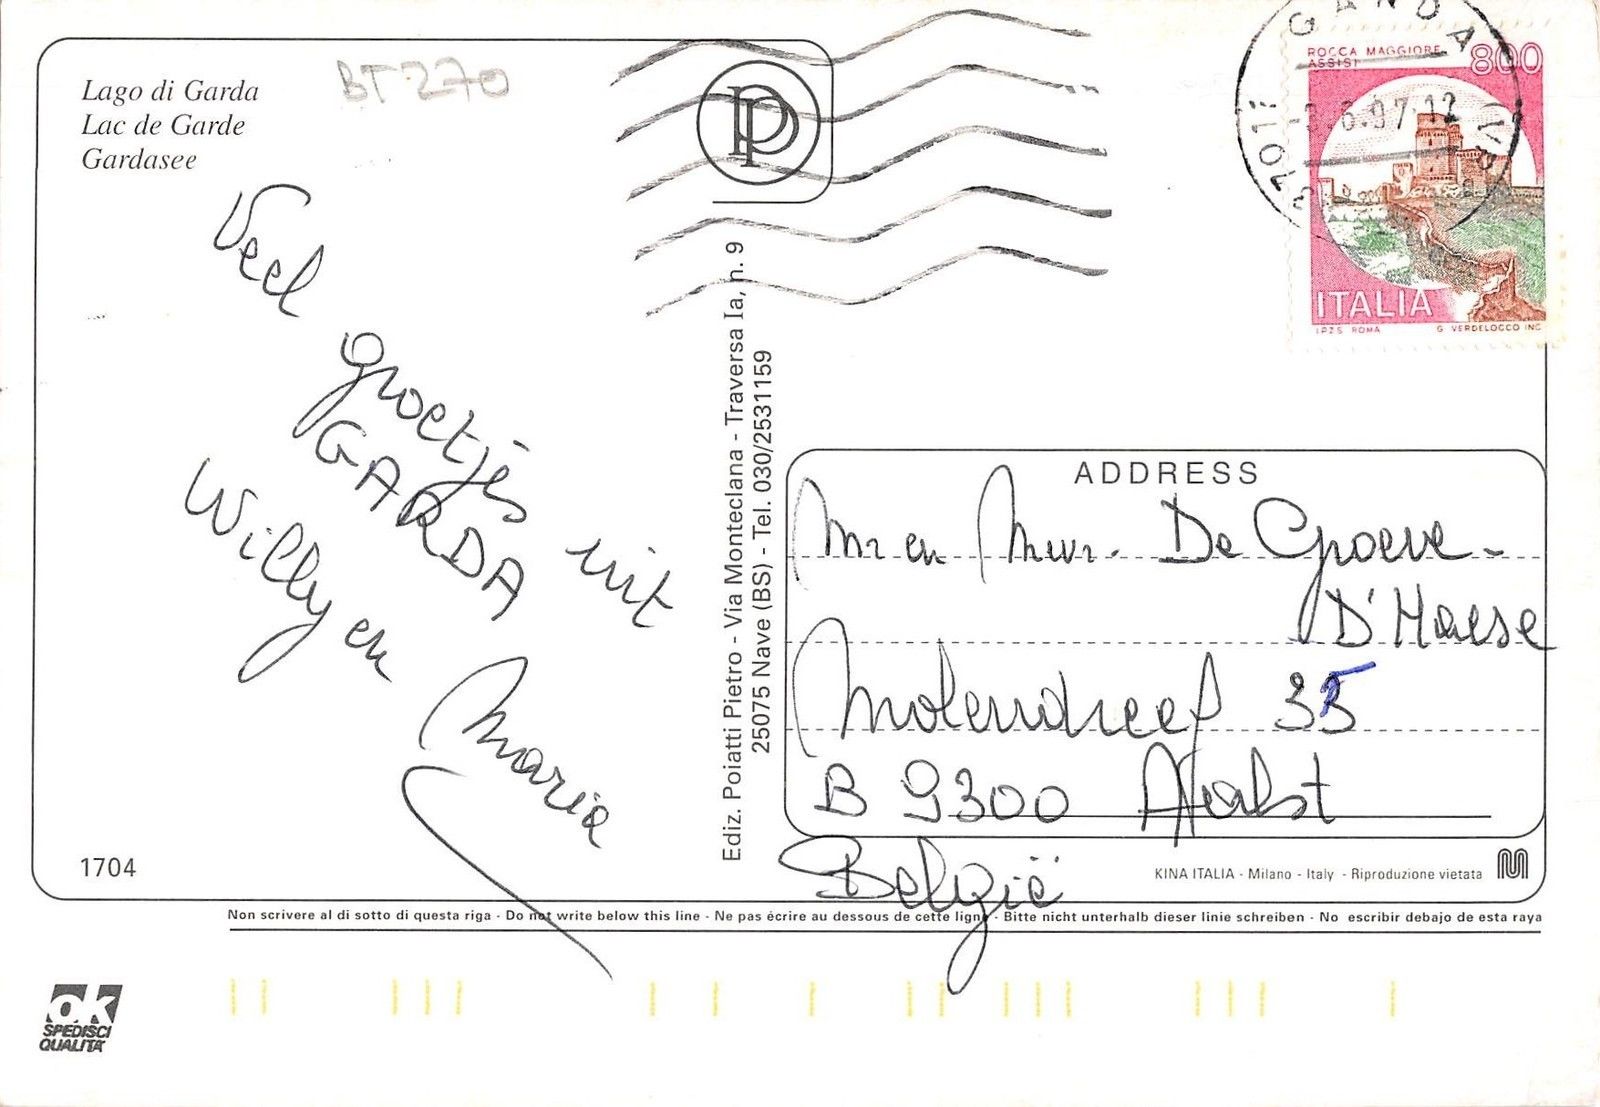 Lago di Garda
Lac de Garde
Gardasee
BT270
PP
Veel
groetjes uit
GARDA
Willy en Maria
1704
Ediz. Poiatti Pietro - Via Monteclana - Traversa Ia, n. 9
25075 Nave (BS) - Tel. 030/2531159
GARDA
37017
(VR)
ROCCA MAGGIORE
ASSISI
800
ITALIA
I.P.Z.S. ROMA
G. VERDELOCCO INC.
ADDRESS
Mr en Mevr. De Groeve-
D'Haese
Molendreef 35
B 9300 Aalst
België
KINA ITALIA - Milano - Italy - Riproduzione vietata
Non scrivere al di sotto di questa riga - Do not write below this line - Ne pas écrire au dessous de cette ligne - Bitte nicht unterhalb dieser linie schreiben - No escribir debajo de esta raya
ok
SPEDISCI
QUALITA'